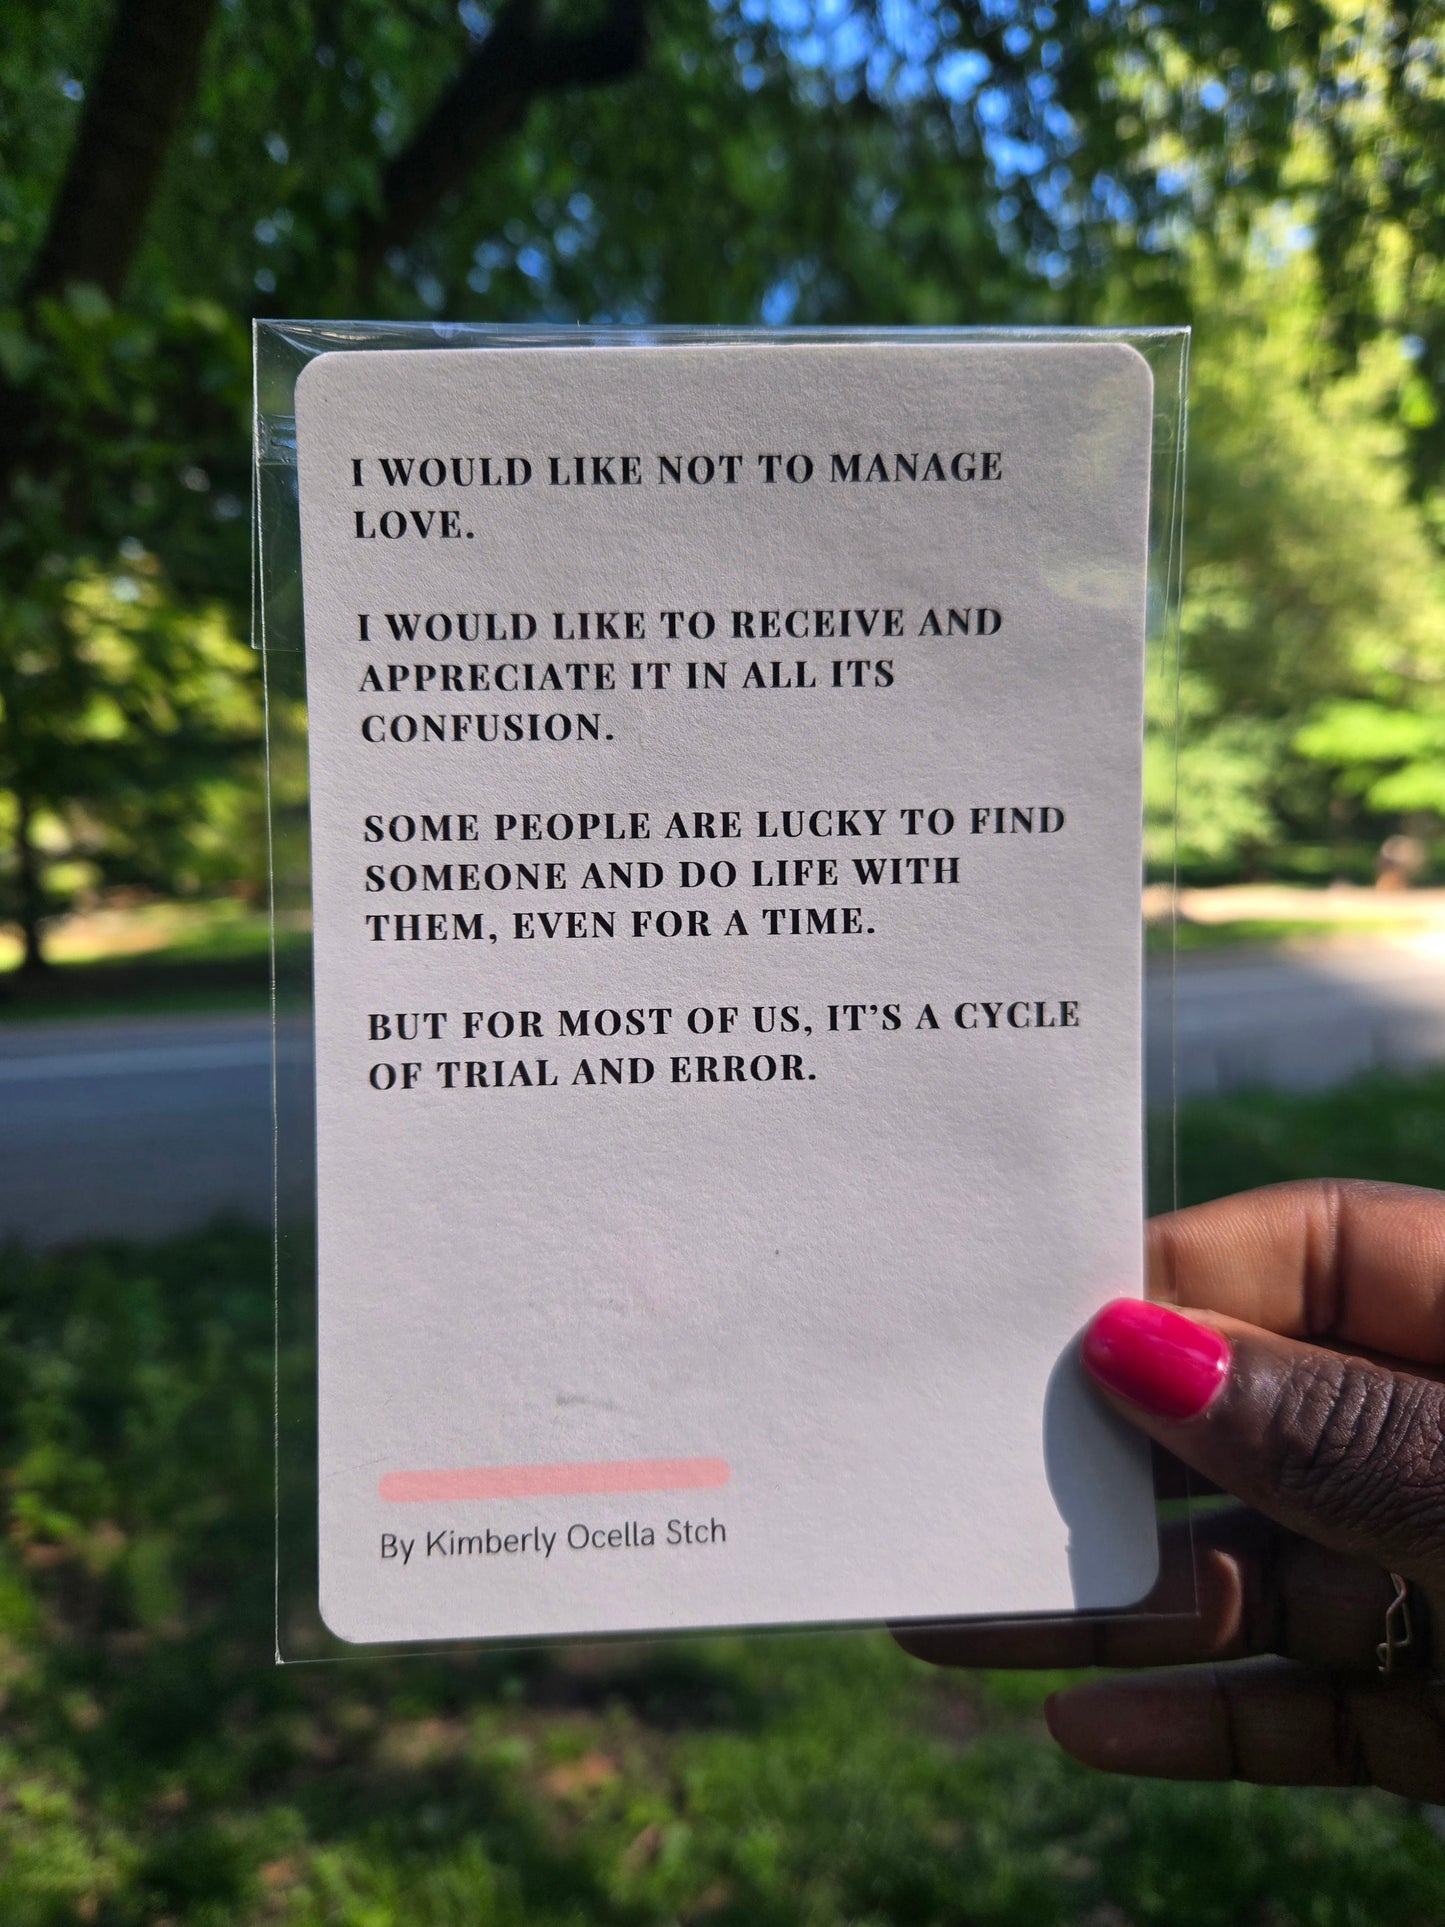 I WOULD LIKE NOT TO MANAGE
LOVE.
I WOULD LIKE TO RECEIVE AND
APPRECIATE IT IN ALL ITS
CONFUSION.
SOME PEOPLE ARE LUCKY TO FIND
SOMEONE AND DO LIFE WITH
THEM, EVEN FOR A TIME.
BUT FOR MOST OF US, IT’S A CYCLE
OF TRIAL AND ERROR.
By Kimberly Ocella Stch